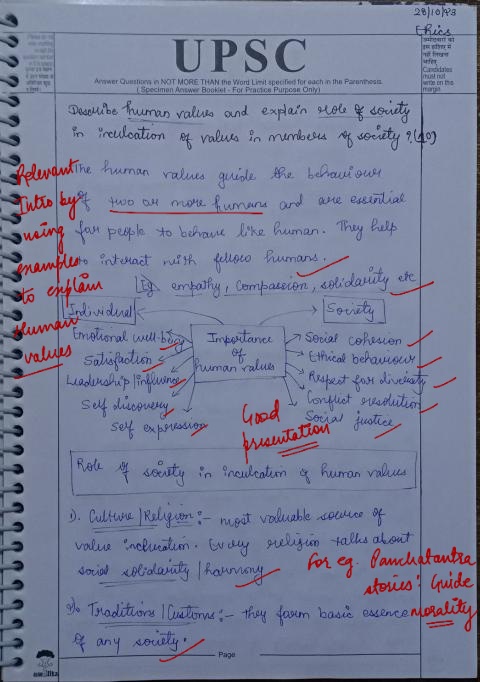 28/10/23
Ethics
UPSC
Answer Questions in NOT MORE THAN the Word Limit specified for each in the Parenthesis.
( Specimen Answer Booklet - For Practice Purpose Only)
उम्मीदवारों को
इस हाशिये में
नहीं लिखना
चाहिए
Candidates
must not
write on this
margin
Describe human values and explain role of society
in inculcation of values in members of society ? (10)
The human values guide the behaviour
of two or more humans and are essential
for people to behave like human. They help
to interact with fellow humans.
Eg empathy, compassion, solidarity etc
Relevant
Intro by
using
examples
to explain
Human
values
Individual
Society
Importance
of
human values
Emotional well-being
Satisfaction
Leadership/influence
Self discovery
Self expression
Social cohesion
Ethical behaviour
Respect for diversity
Conflict resolution
Social justice
Good
presentation
Role of society in inculcation of human values
1). Culture/Religion :- most valuable source of
value inclucation. Every religion talks about
social solidarity/harmony
For eg. Panchatantra
stories: Guide
morality
2). Traditions/Customs :- they form basic essence
of any society.
Page